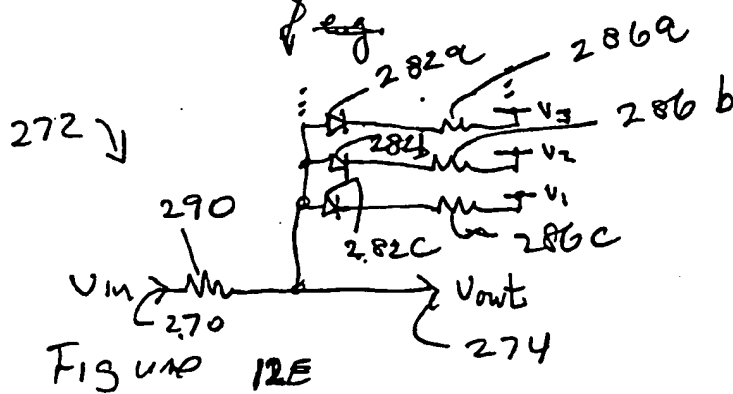 e.g
282a
286a
272
V3
286b
282b
V2
V1
290
282C
286C
Vin
Vout
270
274
Figure 12E